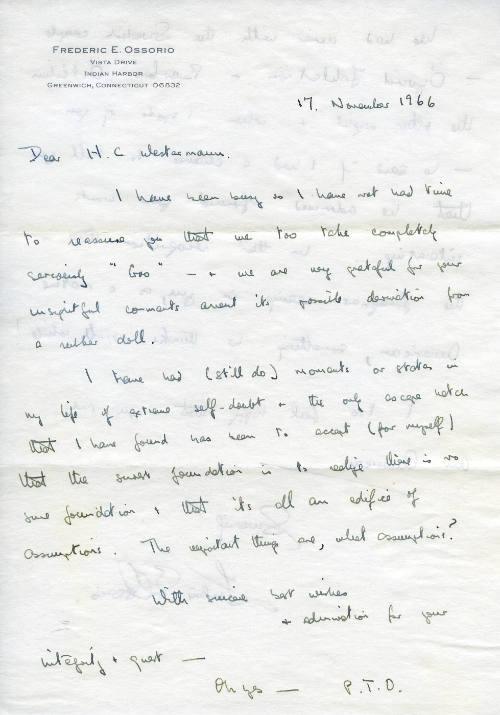 FREDERIC E. OSSORIO
VISTA DRIVE
INDIAN HARBOR
GREENWICH, CONNECTICUT 06832
17. November 1966
Dear H. C Westermann.
I have been busy so I have not had time
to reassure you that we too take completely
seriously " " — + we are very grateful for your
insightful comments anent its possible derivation from
a rubber doll.
I have had (still do) moments or states in
my life of extreme self-doubt + the only escape hatch
that I have found has been to accept (for myself)
that the surest foundation is to realize there is no
sure foundation + that it's all an edifice of
assumptions. The important things are, what assumptions?
With sincere best wishes
+ admiration for your
integrity + quest —
Oh yes — P.T.O.